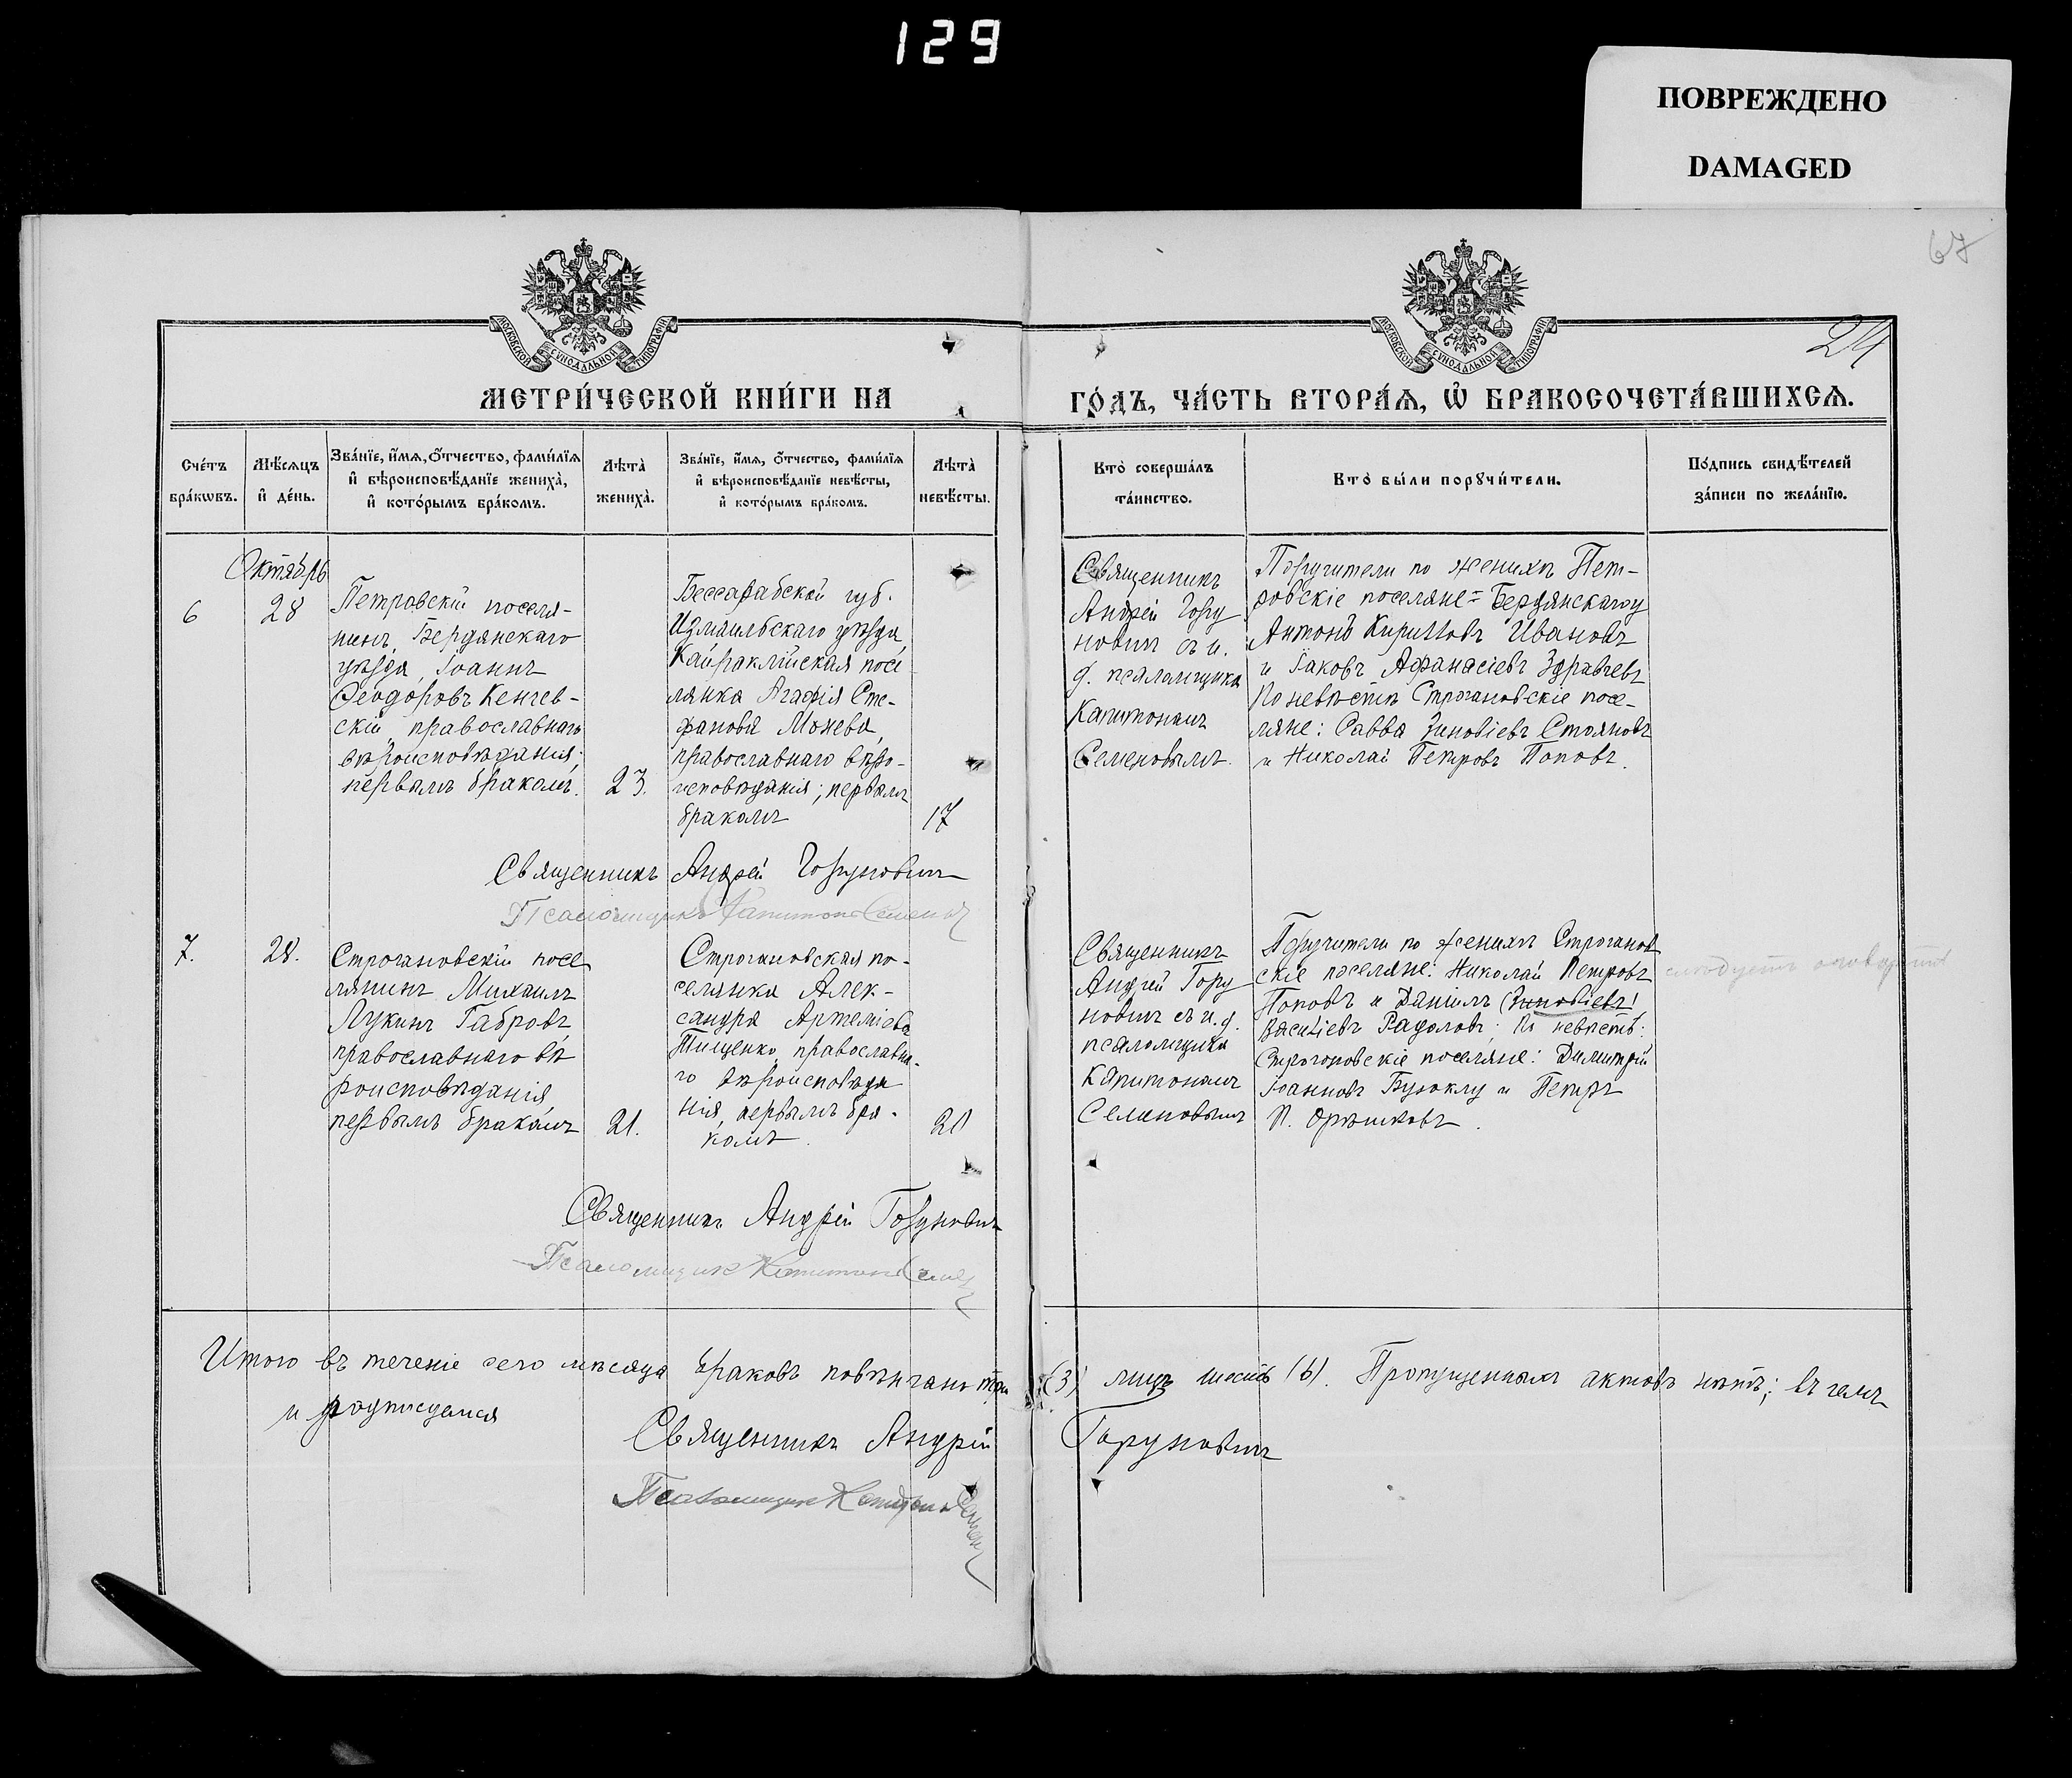 129
ПОВРЕЖДЕНО
DAMAGED
67
24
МОСКОВСКОЙ СѴНОДАЛЬНОЙ ТИПОГРАФІИ
МОСКОВСКОЙ СѴНОДАЛЬНОЙ ТИПОГРАФІИ
МЕТРИ́ЧЕСКОЙ КНИ́ГИ НА
ГО́ДЪ, ЧА́СТЬ ВТОРА́Ѧ, Ѡ҆ БРАКОСОЧЕТА́ВШИХСѦ.
Сче́тъ бра́кѡвъ.
Мѣ́сяцъ и҆ де́нь.
Зва́нїе, и҆́мѧ, ѻ҆́тчество, фами́лїѧ
и҆ вѣроисповѣ́данїе жениха̀,
и҆ кото́рымъ бра́комъ.
Лѣта̀ жениха̀.
Зва́нїе, и҆́мѧ, ѻ҆́тчество, фами́лїѧ
и҆ вѣроисповѣ́данїе невѣ́сты,
и҆ кото́рымъ бра́комъ.
Лѣта̀ невѣ́сты.
Кто̀ соверша́лъ
та́инство.
Кто̀ бы́ли порꙋчи́тели.
По́дпись свидѣ́телей
за́писи по жела́нїю.
Октябрь
6
28
Петровскій поселя-
нинъ, Бердянскаго
уѣзда, Іоаннъ
Ѳеодоровъ Кенчев-
скій, православнаго
вѣроисповѣданія;
первымъ бракомъ.
23.
Бессарабской губ.
Измаильскаго уѣзда
Кайраклійская посе
лянка Агафія Сте-
фанова Монева,
православнаго вѣро-
исповѣданія; первымъ
бракомъ
17
Священникъ
Андрей Гору
новичъ съ и.
д. псаломщика
Капитономъ
Семеновымъ.
Поручители по женихѣ Пет-
ровскіе поселяне= Бердянскагоу
Антонъ Кирилловъ Ивановъ
и Іаковъ Афанасіевъ Здравчевъ
По невѣстѣ Строгановскіе посе-
ляне: Савва Зиновіевъ Стояновъ
и Николай Петровъ Поповъ.
Священникъ Андрей Горуновичъ
Псаломщикъ Капитонъ Семенов
7.
28.
Строгановскій посе
лянинъ Михаилъ
Лукинъ Габровъ,
православнаго вѣ
роисповѣданія
первымъ бракомъ
21.
Строгановская по-
селянка Алек-
сандра Артеміева
Тищенко, православна-
го вѣроисповѣда
нія, первымъ бра-
комъ.
20
Священникъ
Андрей Гору
новичъ съ и.д.
псаломщика
Капитономъ
Семеновымъ
Поручители по женихѣ Строганов
скіе поселяне: Николай Петровъ
Поповъ и Даніилъ (Зиновіевъ)
Василіевъ Радоловъ; По невѣстѣ:
Строгоновскіе поселяне: Димитрій
Іоанновъ Бузуклу и Петръ
П. Орѣшковъ.
слѣдуетъ
Священникъ Андрей Горуновичъ
Псаломщикъ Капитонъ Семенов
Итого въ теченіе сего мѣсяца браковъ повѣнчано три (3) лицъ шесть (6). Пропущенныхъ актовъ нѣтъ; въ чемъ
и подписуемся
Священникъ Андрей Горуновичъ
Псаломщикъ Капитонъ Семенов